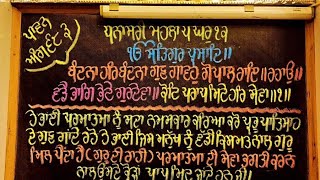 ਪਾਵਨ
ਅੰਗ ੬੮੩
ਧਨਾਸਰੀ ਮਹਲਾ ੫ ਘਰੁ ੧੨
ੴ ਸਤਿਗੁਰ ਪ੍ਰਸਾਦਿ॥
ਬੰਦਨਾ ਹਰਿ ਬੰਦਨਾ ਗੁਣ ਗਾਵਹੁ ਗੋਪਾਲ ਰਾਇ॥ਰਹਾਉ॥
ਵਡੈ ਭਾਗਿ ਭੇਟੇ ਗੁਰਦੇਵਾ॥ ਕੋਟਿ ਪਰਾਧ ਮਿਟੇ ਹਰਿ ਸੇਵਾ॥੧॥
ਹੇ ਭਾਈ ਪਰਮਾਤਮਾ ਨੂੰ ਸਦਾ ਨਮਸਕਾਰ ਕਰਿਆ ਕਰੋ ਪ੍ਰਭੂ ਪਾਤਿਸ਼ਾਹ
ਦੇ ਗੁਣ ਗਾਂਦੇ ਰਹੋ ਹੇ ਭਾਈ ਜਿਸ ਮਨੁੱਖ ਨੂੰ ਵੱਡੀ ਕਿਸਮਤ ਨਾਲ ਗੁਰੂ
ਮਿਲ ਪੈਂਦਾ ਹੈ (ਗੁਰੂ ਦੀ ਰਾਹੀਂ) ਪਰਮਾਤਮਾ ਦੀ ਸੇਵਾ ਭਗਤੀ ਕਰਨ
ਨਾਲ ਉਸਦੇ ਕ੍ਰੋੜਾਂ ਪਾਪ ਮਿਟ ਜਾਂਦੇ ਹਨ॥੧॥